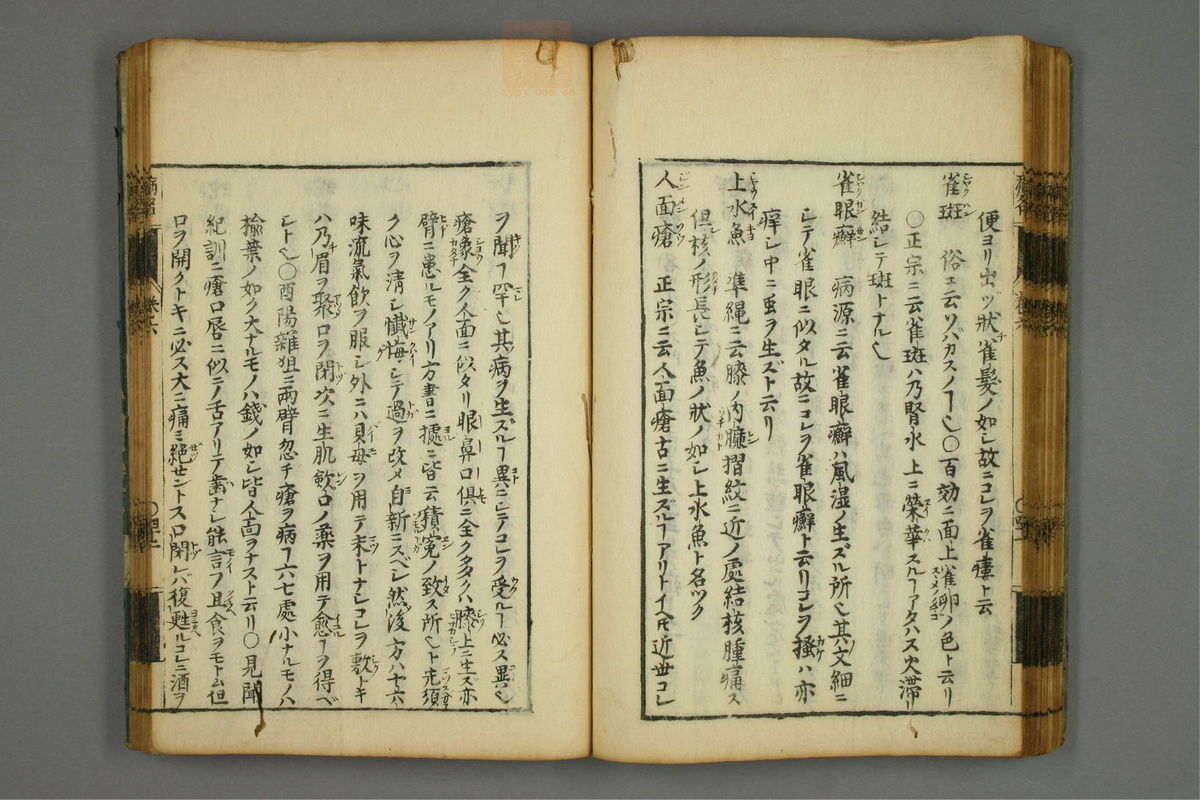 便ヨリ出ヅ狀雀髮ノ如シ故ニコレヲ雀瘻ト云
雀斑 俗ニ云ソバカスノヿ也〇百効ニ面上雀卵ノ色ト云リ
〇正宗ニ云雀斑ハ乃腎水上ニ榮華スルヿアタハス火滯
結シテ斑トナル也
雀眼癬 病源ニ云雀眼癬ハ風湿ノ生ズル所也其文細ニ
シテ雀眼ニ似タル故ニコレヲ雀眼癬ト云リコレヲ搔ハ亦
痒シ中ニ虫ヲ生ズト云リ
上水魚 準縄ニ云膝ノ内臁摺紋ニ近ノ處結核腫痛ス
但核ノ形長シテ魚ノ狀ノ如シ上水魚ト名ツク
人面瘡 正宗ニ云人面瘡古ニ生ズルヿアリトイヘ𪜈近世コレ
ヲ聞ヿ罕也其病ヲ生ズルヿ異ニシテコレヲ受ルヿ必ス異也
瘡象全ク人面ニ似タリ眼鼻口俱ニ全ク多クハ膝上ニ生ズ亦
臂ニ患ルモノアリ方書ニ據ニ皆云積寃ノ致ス所也ト先須
ク心ヲ淸シ懺悔シテ過ヲ改メ自新ニスベシ然後方ハ十六
味流氣飮ヲ服シ外ニハ貝母ヲ用テ末トナシコレヲ敷トキ
ハ乃眉ヲ聚口ヲ閉次ニ生肌斂口ノ藥ヲ用テ愈ヿヲ得ベ
シト也〇酉陽雜狙ニ兩臂忽チ瘡ヲ病ヿ六七處小ナルモノハ
楡葉ノ如ク大ナルモノハ錢ノ如シ皆人面ヲナスト云リ〇見聞
紀訓ニ瘡口唇ニ似テノ舌アリテ齒ナシ能言フ且食ヲモトム但
口ヲ開クトキニ必ス大ニ痛ミ絕セントス口閉レバ復甦ルコレニ酒ヲ